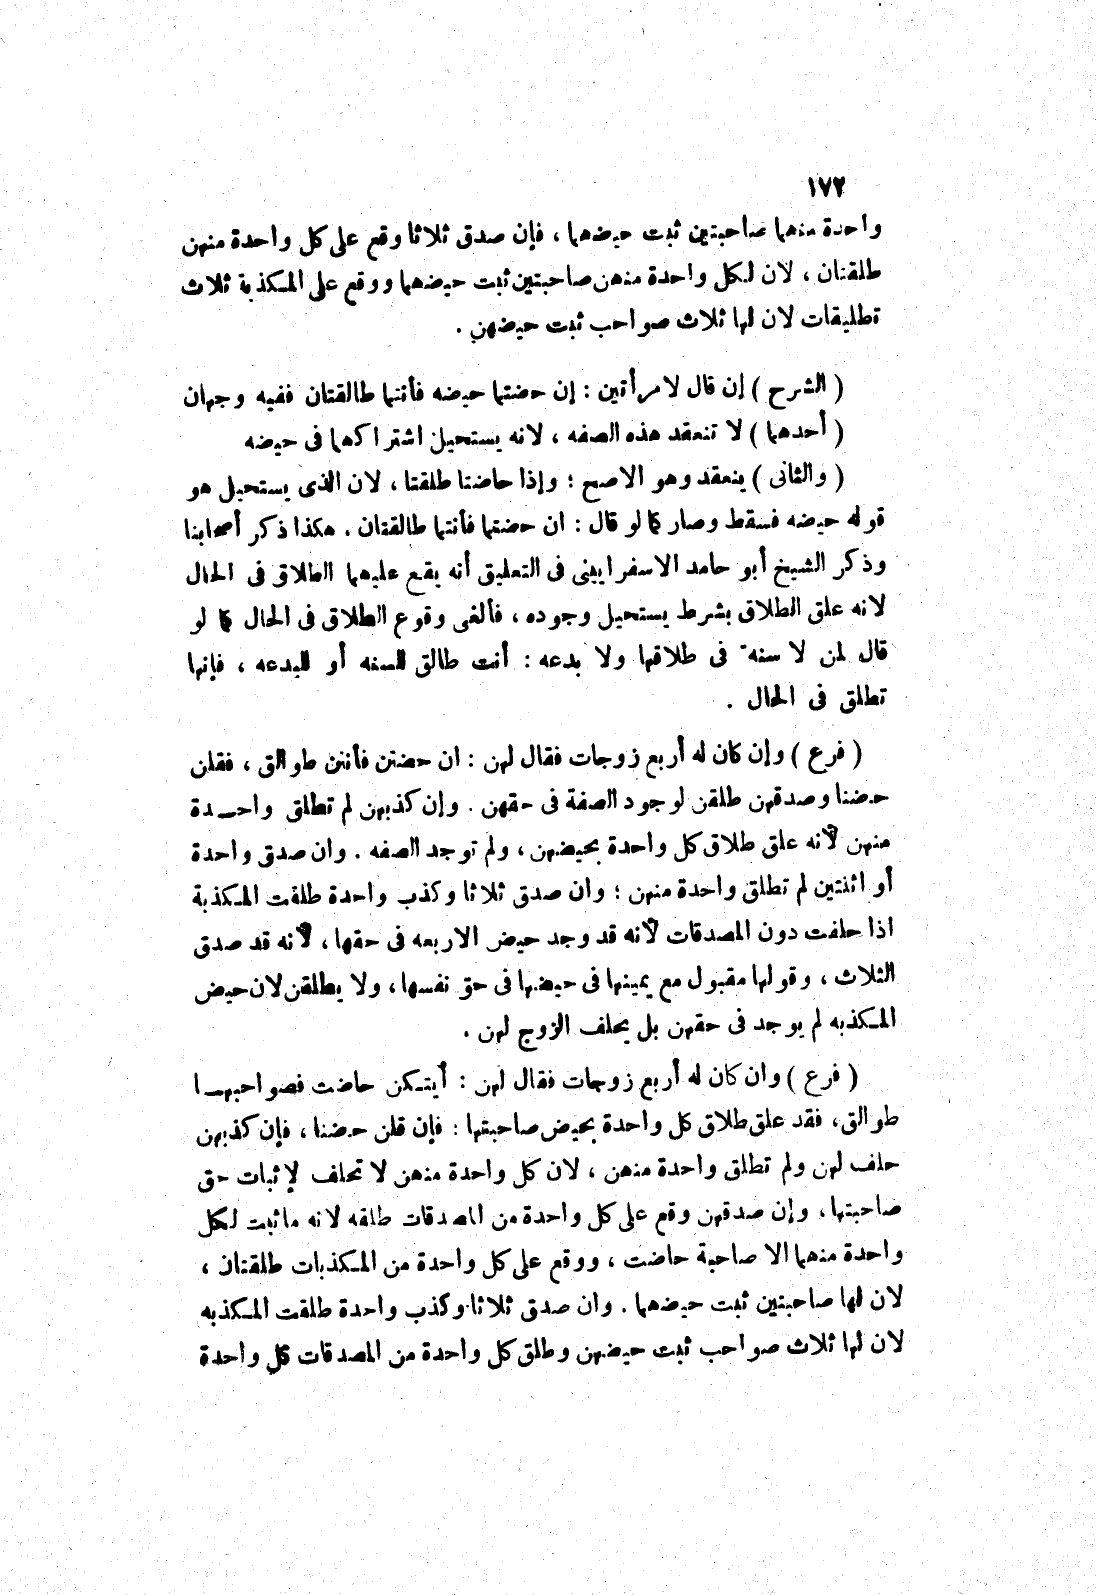 ١٧٢
واحدة منهما صاحبتين ثبت حيضهما ، فإن صدق ثلاثا وقع على كل واحدة منهن
طلقتان ، لان لكل واحدة منهن صاحبتين ثبت حيضهما ووقع على المكذبة ثلاث
تطليقات لان لها ثلاث صواحب ثبت حيضهن .
( الشرح ) إن قال لامرأتين : إن حضتما حيضه فأنتما طالقتان ففيه وجهان
( أحدهما ) لا تنعقد هذه الصفه ، لانه يستحيل اشتراكهما فى حيضه
( والثانى ) ينعقد وهو الاصح : وإذا حاضتا طلقتا ، لان الذى يستحيل هو
قوله حيضه فسقط وصار كما لو قال : ان حضتما فأنتما طالقتان . هكذا ذكر أصحابنا
وذكر الشيخ أبو حامد الاسفراييني فى التعليق أنه يقع عليهما الطلاق فى الحال
لانه علق الطلاق بشرط يستحيل وجوده ، فألغى وقوع الطلاق فى الحال كما لو
قال لمن لا سنه فى طلاقها ولا بدعه : أنت طالق للسنه أو للبدعه ، فإنها
تطلق فى الحال .
( فرع ) وإن كان له أربع زوجات فقال لهن : ان حضتن فأنتن طوالق ، فقلن
حضنا وصدقهن طلقن لوجود الصفة فى حقهن . وإن كذبهن لم تطلق واحـــدة
منهن لأنه علق طلاق كل واحدة بحيضهن ، ولم توجد الصفه . وان صدق واحدة
أو اثنتين لم تطلق واحدة منهن : وان صدق ثلاثا وكذب واحدة طلقت المكذبة
اذا حلفت دون المصدقات لأنه قد وجد حيض الاربعه فى حقها ، لأنه قد صدق
الثلاث ، وقولها مقبول مع يمينها فى حيضها فى حق نفسها ، ولا يطلقن لان حيض
المكذبه لم يوجد فى حقهن بل يحلف الزوج لهن .
( فرع ) وان كان له أربع زوجات فقال لهن : أيتكن حاضت فصواحبهـــا
طوالق ، فقد علق طلاق كل واحدة بحيض صاحبتها : فإن قلن حضنا ، فإن كذبهن
حلف لهن ولم تطلق واحدة منهن ، لان كل واحدة منهن لا تحلف لإثبات حق
صاحبتها ، وإن صدقهن وقع على كل واحدة من المصدقات طلقه لانه ما ثبت لكل
واحدة منهما الا صاحبة حاضت ، ووقع على كل واحدة من المكذبات طلقتان ،
لان لها صاحبتين ثبت حيضهما . وان صدق ثلاثا وكذب واحدة طلقت المكذبه
لان لها ثلاث صواحب ثبت حيضهن وطلق كل واحدة من المصدقات كل واحدة